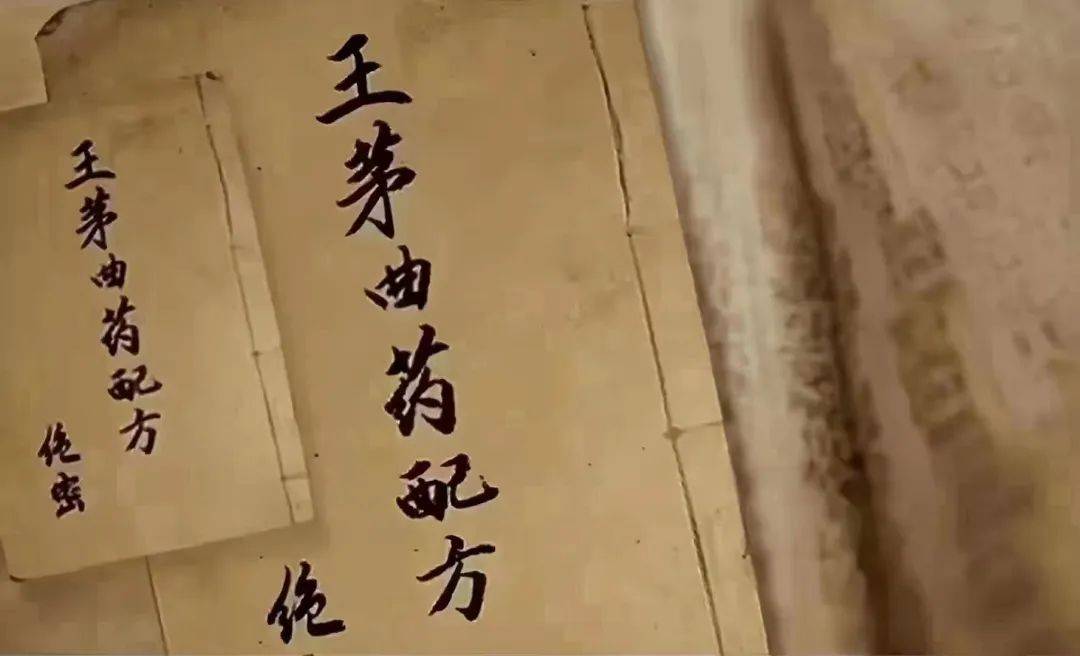 王茅曲药配方
绝密
王茅曲药配方
绝